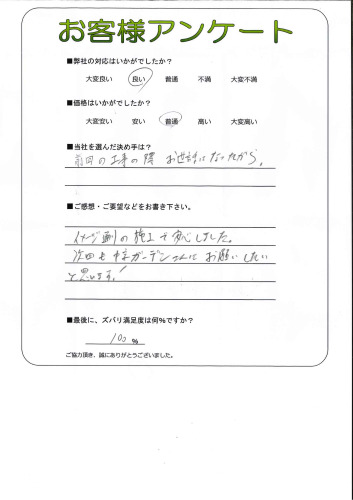 お客様アンケート
■弊社の対応はいかがでしたか？
大変良い 良い 普通 不満 大変不満
■価格はいかがでしたか？
大変安い 安い 普通 高い 大変高い
■当社を選んだ決め手は？
前回の工事の際 お世話になったから。
■ご感想・ご要望などをお書き下さい。
イメージ通りの施工で安心しました。
次回も ガーデンさんにお願いしたい
と思います!
■最後に、ズバリ満足度は何％ですか？
100 ％
ご協力頂き、誠にありがとうございました。